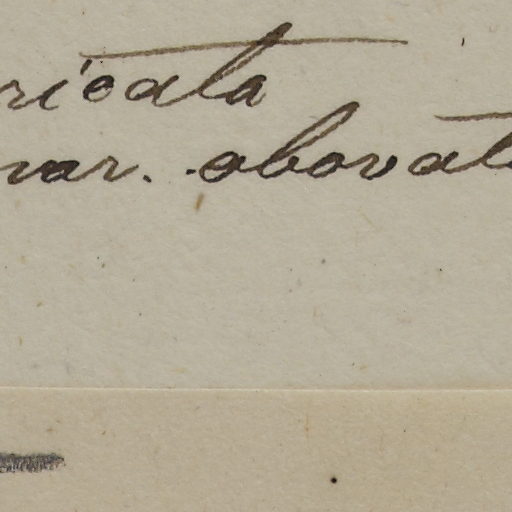 ricata
var. obovat